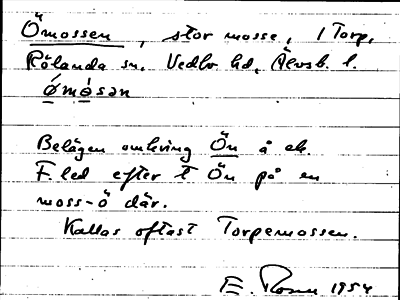 Ömossen, stor mosse, i Torp,
Rölanda sn. Vedbo hd, Älvsb. l.
ø̀mósən
Belägen omkring Ön å ek.
F. led efter t Ön på en
moss-ö där.
Kallas oftast Torpemossen.
E. 1954